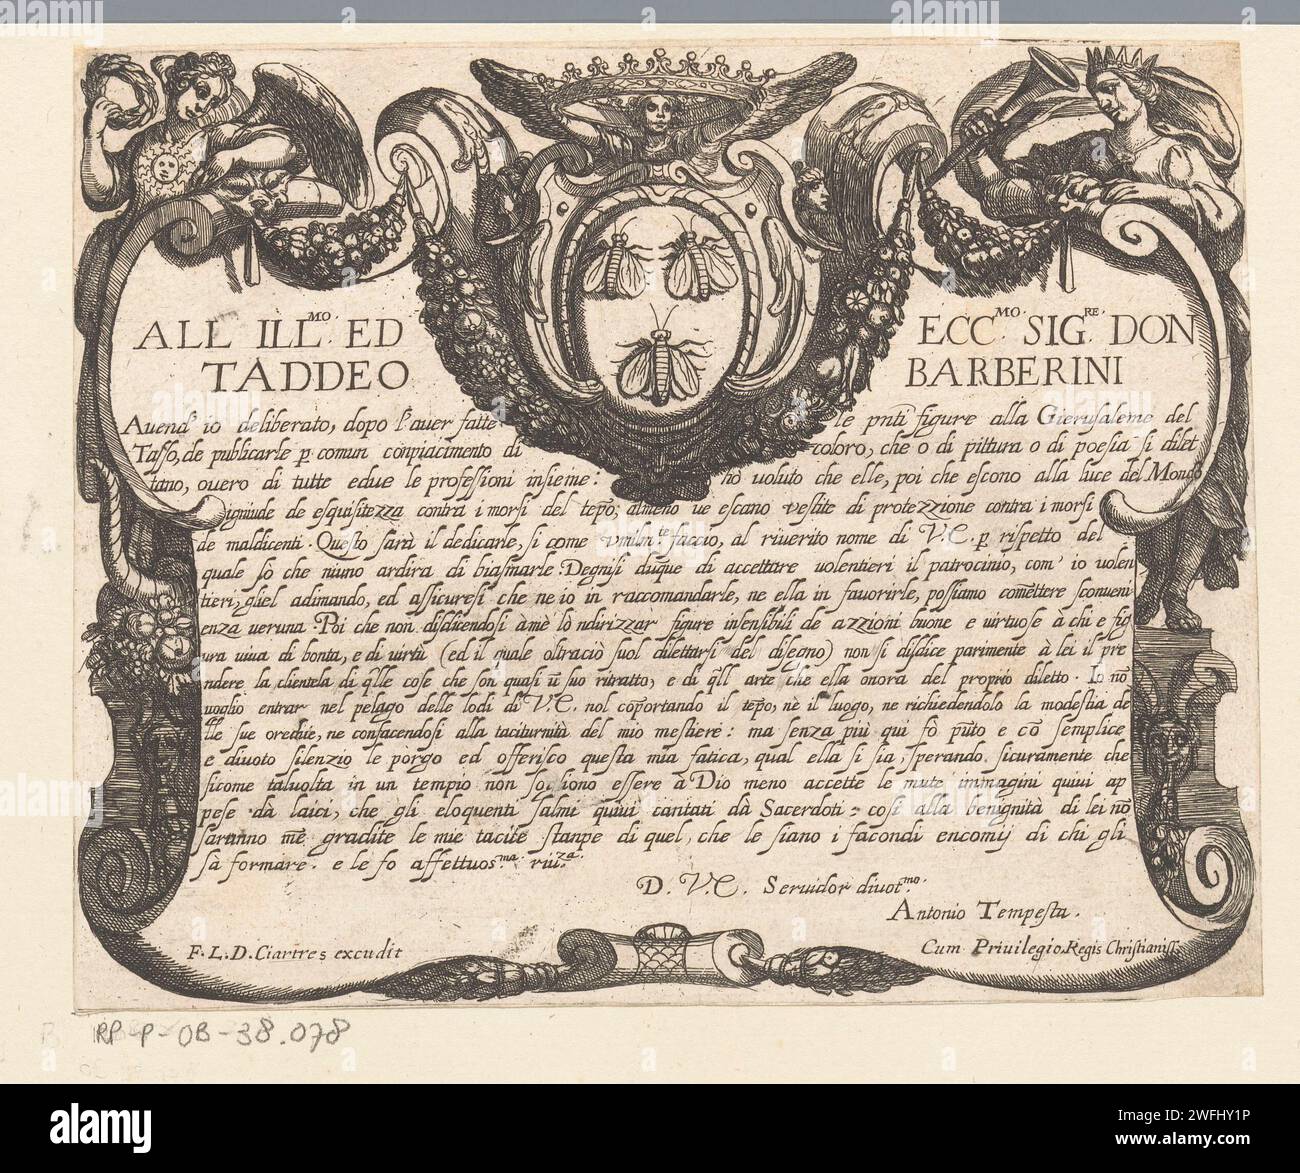 ALL ILL.MO. ED ECC.MO. SIG.RE. DON
TADDEO BARBERINI
Auend' io deliberato, dopo l'auer fatte le pñti figure alla Gierusaleme del
Tasso, de publicarle p comun conpiacimento di coloro, che o di pittura o di poesia si dilet
tano, ouero di tutte edue le professioni insieme: hò voluto che elle, poi che escono alla luce del Mondo
ignude de esquisitezza contra i morsi del tepo; almeno ue escano vestite di protezzione contra i morsi
de maldicenti. Questo sarà il dedicarle, si come vmilm.te faccio, al riuerito nome di V.E. p rispetto del
quale sò che niuno ardira di biasmarle. Degnisi duque di accettare volentieri il patrocinio, com' io volen
tieri, gliel adimando, ed assicuresi che ne io in raccomandarle, ne ella in fauorirle, possiamo comettere sconueni
enza veruna. Poi che non disdicendosi à mè lò ndirizzar figure insensibili de azzioni buone e virtuose à chi e fig
ura viua di bonta, e di virtù (ed il quale oltraciò suol dilettarsi del disegno) non si disdice parimente à lei il pre
ndere la clientela di q̃lle cose che son quasi ũ suo ritratto, e di q̃ll arte che ella onora del proprio diletto. Io nõ
voglio entrar nel pelago delle lodi di V.E. nol coportando il tepo, nè il luogo, ne richiedendolo la modestia de
lle sue orechie, ne confacendosi alla taciturnità del mio mestiere: ma senza più qui fò pũto e cõ semplice
e diuoto silenzio le porgo ed offerisco questa mia fatica, qual ella si sia, sperando sicuramente che
sicome taluolta in un tempio non sogliono essere à Dio meno accette le mute immagini quiui ap
pese da laici, che gli eloquenti salmi quiui cantati dà Sacerdoti; così alla benignità di lei nõ
saranno mẽ gradite le mie tacite stanpe di quel, che le siano i facondi encomij di chi gli
sà formare. e le fo affettuos.ma riu.za
D. V.E. Seruidor diuot.mo.
Antonio Tempesta.
F. L. D. Ciartres excudit Cum Priuilegio Regis Christianiss.
RP-P-OB-38.078
alamy
Image ID: 2WFHY1P
www.alamy.com